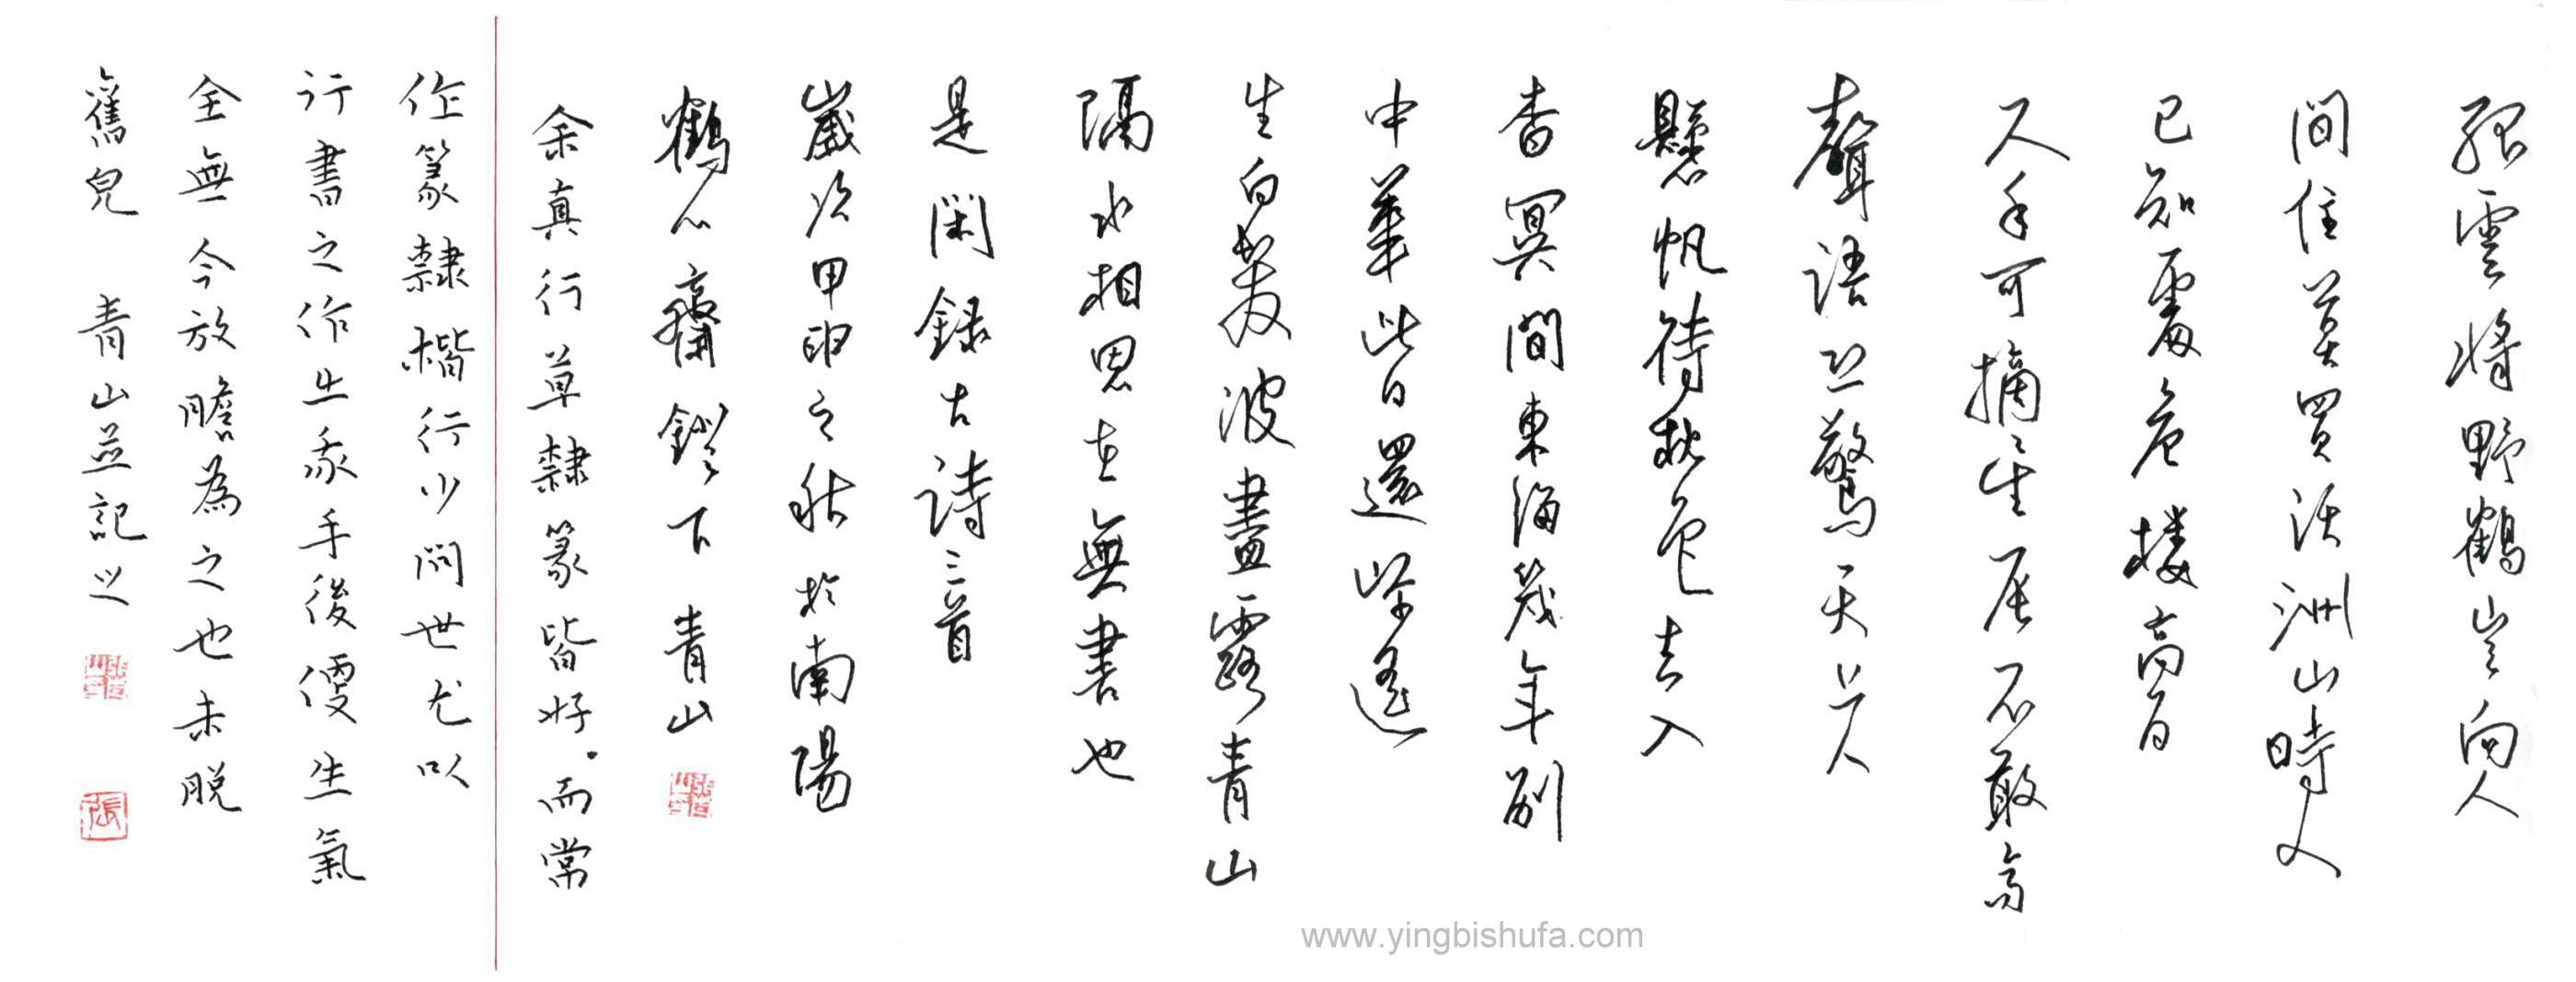 孤雲將野鶴豈向人
間住莫買沃洲山時人
已知處危樓高百
尺手可摘星辰不敢高
聲語恐驚天上人
懸帆待秋色去入
杳冥間東海幾年別
中華此日還岸遙
生白髮波盡露青山
隔水相思在無書也
是閑錄古詩三首
歲次甲申之秋於南陽
鶴心齋鐙下 青山
余真行草隸篆皆好。而常
作篆隸楷行少問世尤以
行書之作出手後生氣
全無今放膽為之也未脫
舊皃 青山並記之
張
www.yingbishufa.com